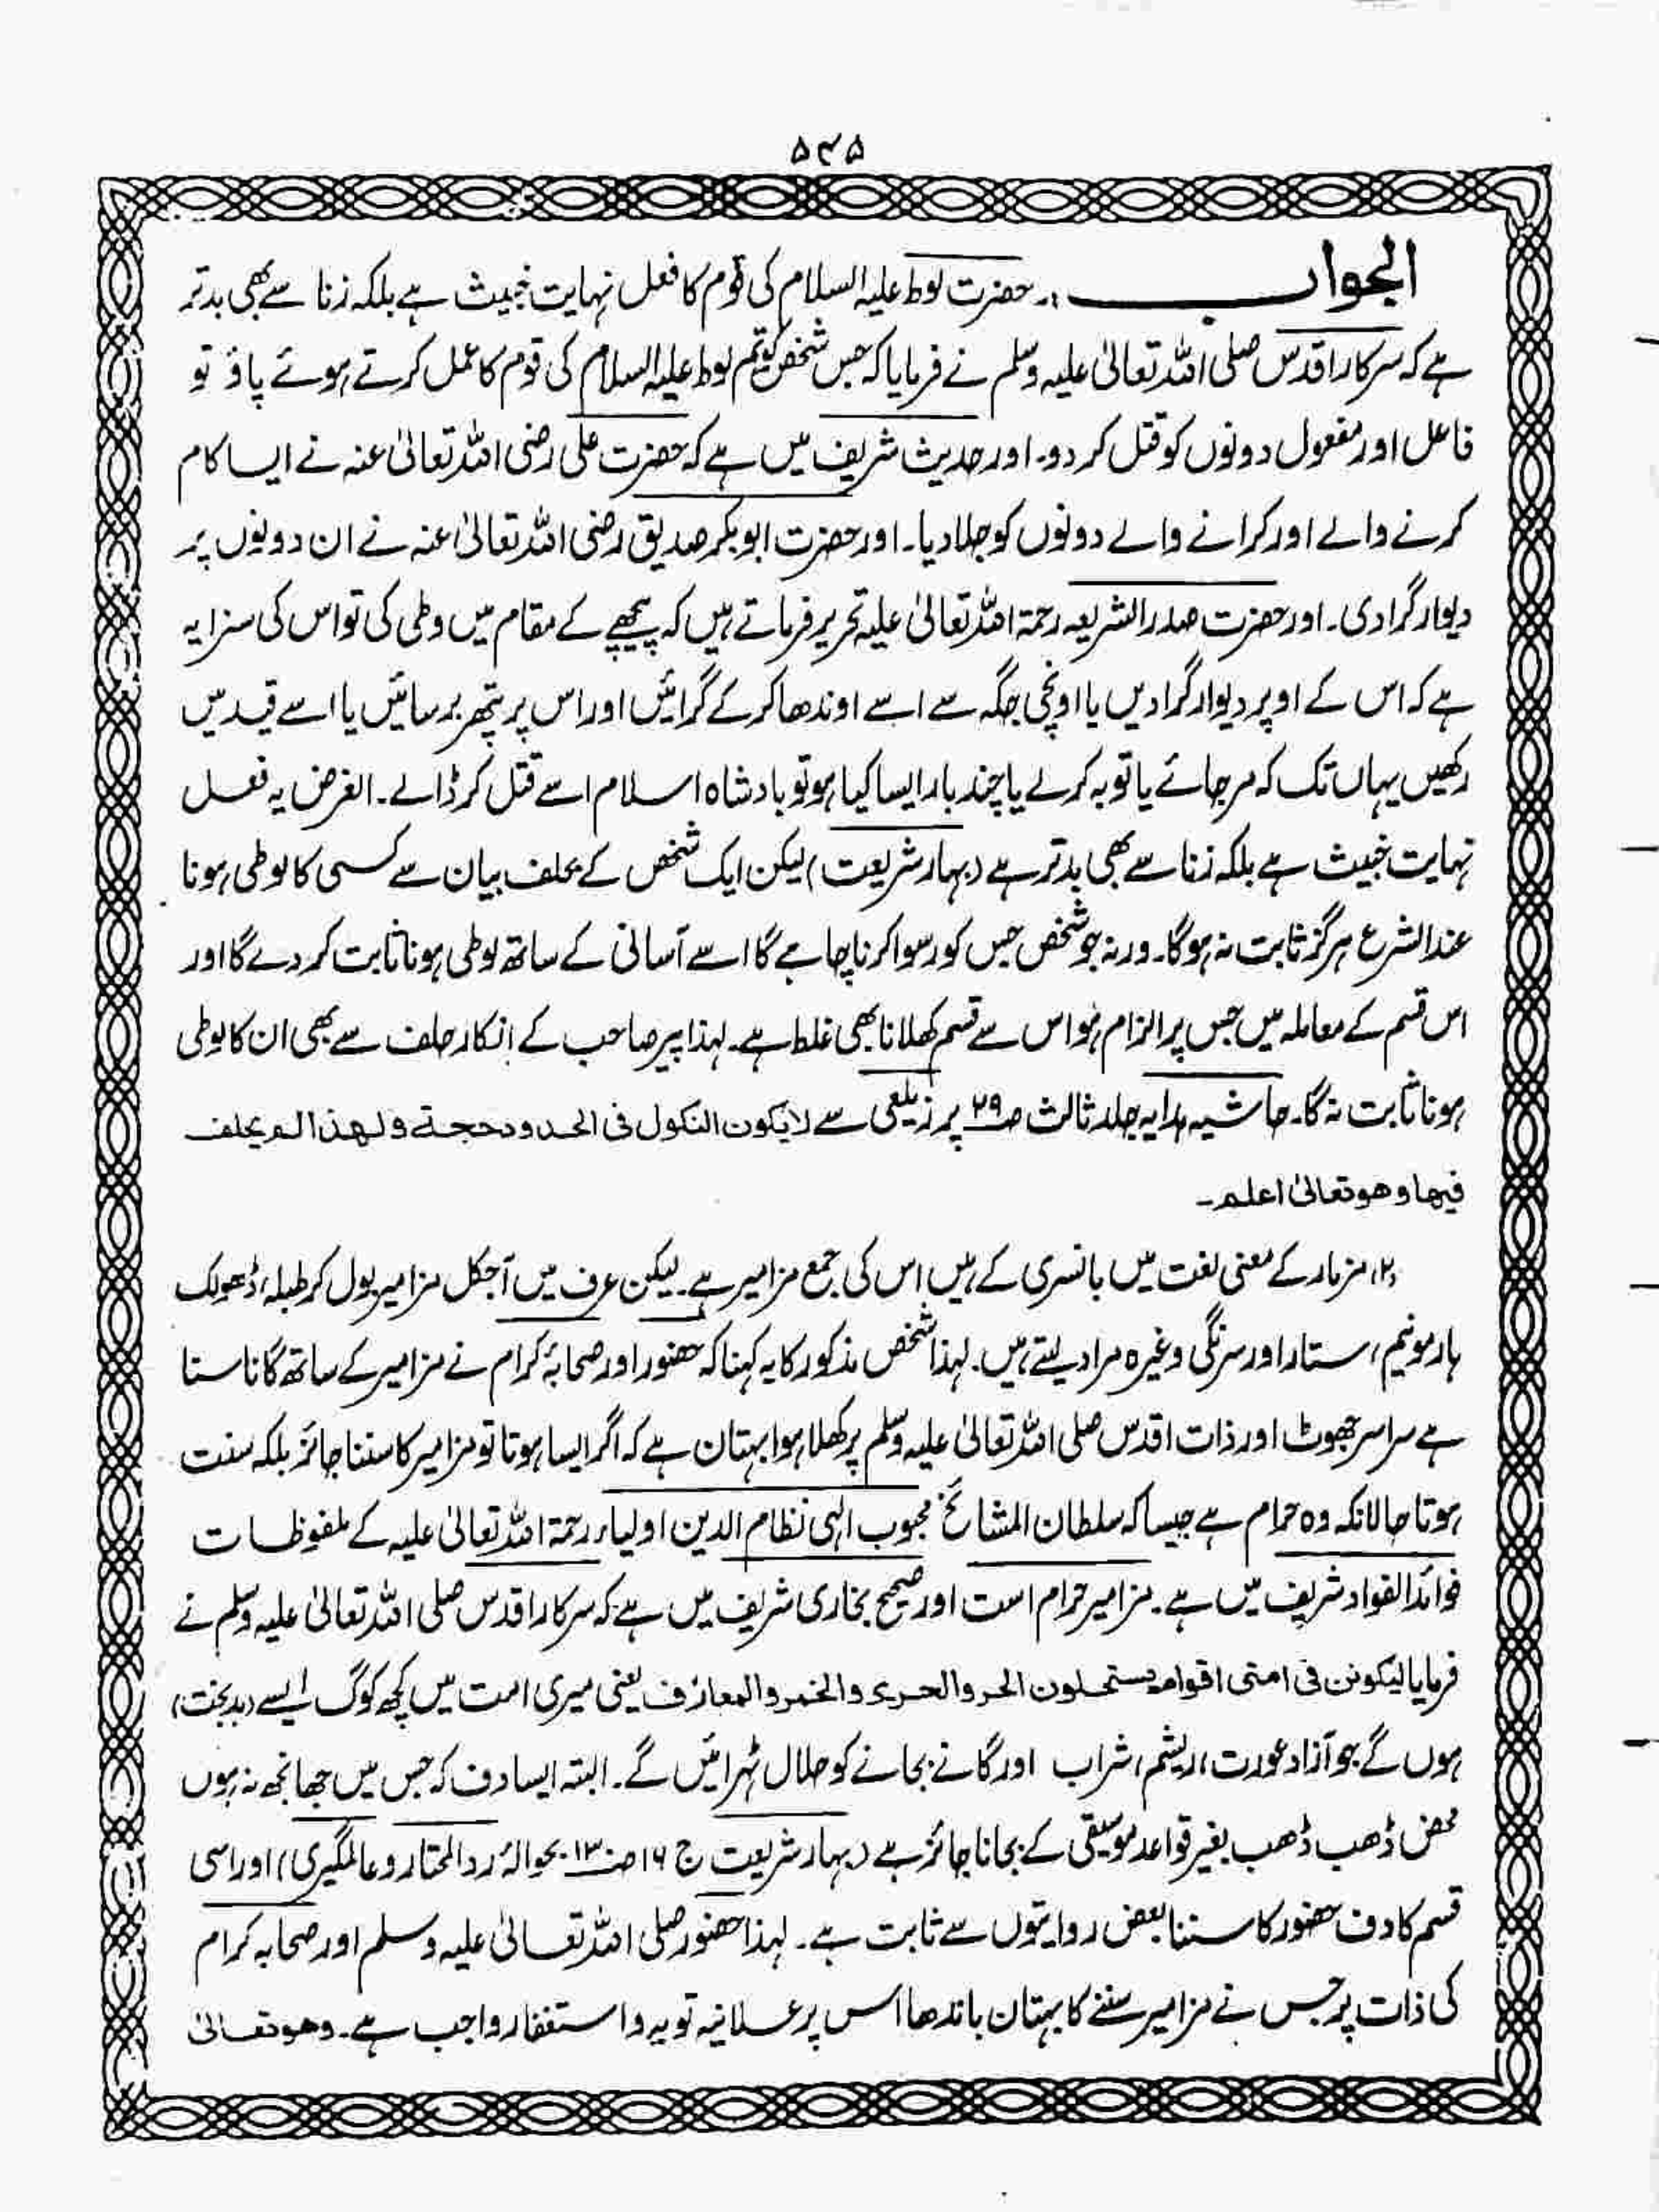 ۵۴۵
الجواب :۔ حضرت لوط علیہ السلام کی قوم کا فعل نہایت خبیث ہے بلکہ زنا سے بھی بدتر
ہے کہ سرکار اقدس صلی اللہ تعالیٰ علیہ وسلم نے فرمایا کہ جس شخص کو تم لوط علیہ السلام کی قوم کا عمل کرتے ہوئے پاؤ تو
فاعل اور مفعول دونوں کو قتل کر دو۔ اور حدیث شریف میں ہے کہ حضرت علی رضی اللہ تعالیٰ عنہ نے ایسا کام
کرنے والے اور کرانے والے دونوں کو جلا دیا۔ اور حضرت ابو بکر صدیق رضی اللہ تعالیٰ عنہ نے ان دونوں پر
دیوار گرا دی۔ اور حضرت صدر الشریعہ رحمۃ اللہ تعالیٰ علیہ تحریر فرماتے ہیں کہ پیچھے کے مقام میں وطی کی تو اس کی سزا یہ
ہے کہ اس کے اوپر دیوار گرا دیں یا اونچی جگہ سے اسے اوندھا کر کے گرائیں اور اس پر پتھر برسائیں یا اسے قید میں
رکھیں یہاں تک کہ مر جائے یا توبہ کر لے یا چند بار ایسا کیا ہو تو بادشاہ اسلام اسے قتل کر ڈالے۔ الغرض یہ فعل
نہایت خبیث ہے بلکہ زنا سے بھی بدتر ہے (بہار شریعت) لیکن ایک شخص کے بحلف بیان سے کسی کا لوطی ہونا
عند الشرع ہرگز ثابت نہ ہوگا۔ ورنہ جو شخص جیں کو رسوا کرنا چاہے گا اسے آسانی کے ساتھ لوطی ہونا ثابت کر دے گا اور
اس قسم کے معاملہ میں جس پر الزام ہو اس سے قسم کھلانا بھی غلط ہے۔ لہذا پیر صاحب کے انکار حلف سے بھی ان کا لوطی
ہونا ثابت نہ گا۔ حاشیہ ہدایہ جلد ثالث ص۲۹ پر زیلعی سے لا یکون النکول فی الحدود حجۃ ولھذا لم یحلف
فیھا وھو تعالیٰ اعلم۔
(۲) مزمار کے معنی لغت میں بانسری کے ہیں اس کی جمع مزامیر ہے۔ لیکن عرف میں آجکل مزامیر بول کر طبلہ، ڈھولک
ہارمونیم، ستار اور سرنگی وغیرہ مراد لیتے ہیں۔ لہذا شخص مذکور کا یہ کہنا کہ حضور اور صحابۂ کرام نے مزامیر کے ساتھ گانا سنا
ہے سراسر جھوٹ اور ذات اقدس صلی اللہ تعالیٰ علیہ وسلم پر کھلا ہوا بہتان ہے کہ اگر ایسا ہوتا تو مزامیر کا سننا جائز بلکہ سنت
ہوتا حالانکہ وہ حرام ہے جیسا کہ سلطان المشائخ محبوب الہی نظام الدین اولیاء رحمۃ اللہ تعالیٰ علیہ کے ملفوظات
فوائد الفواد شریف میں ہے۔ مزامیر حرام است اور صحیح بخاری شریف میں ہے کہ سرکار اقدس صلی اللہ تعالیٰ علیہ وسلم نے
فرمایا لیکونن فی امتی اقوام یستحلون الحر والحریر والخمر والمعازف یعنی میری امت میں کچھ لوگ ایسے (بدبخت)
ہوں گے جو آزاد عورت، ریشم، شراب اور گانے بجانے کو حلال ٹہرائیں گے۔ البتہ ایسا دف کہ جس میں جھانجھ نہ ہوں
محض ڈھب ڈھب بغیر قواعد موسیقی کے بجانا جائز ہے (بہار شریعت ج ۱۶ ص۱۳۰ بحوالۂ رد المحتار و عالمگیری) اور اسی
قسم کا دف حضور کا سننا بعض روایتوں سے ثابت ہے۔ لہذا حضور صلی اللہ تعالیٰ علیہ وسلم اور صحابہ کرام
کی ذات پر جس نے مزامیر سننے کا بہتان باندھا اس پر علانیہ توبہ و استغفار واجب ہے۔ وھو تعالیٰ